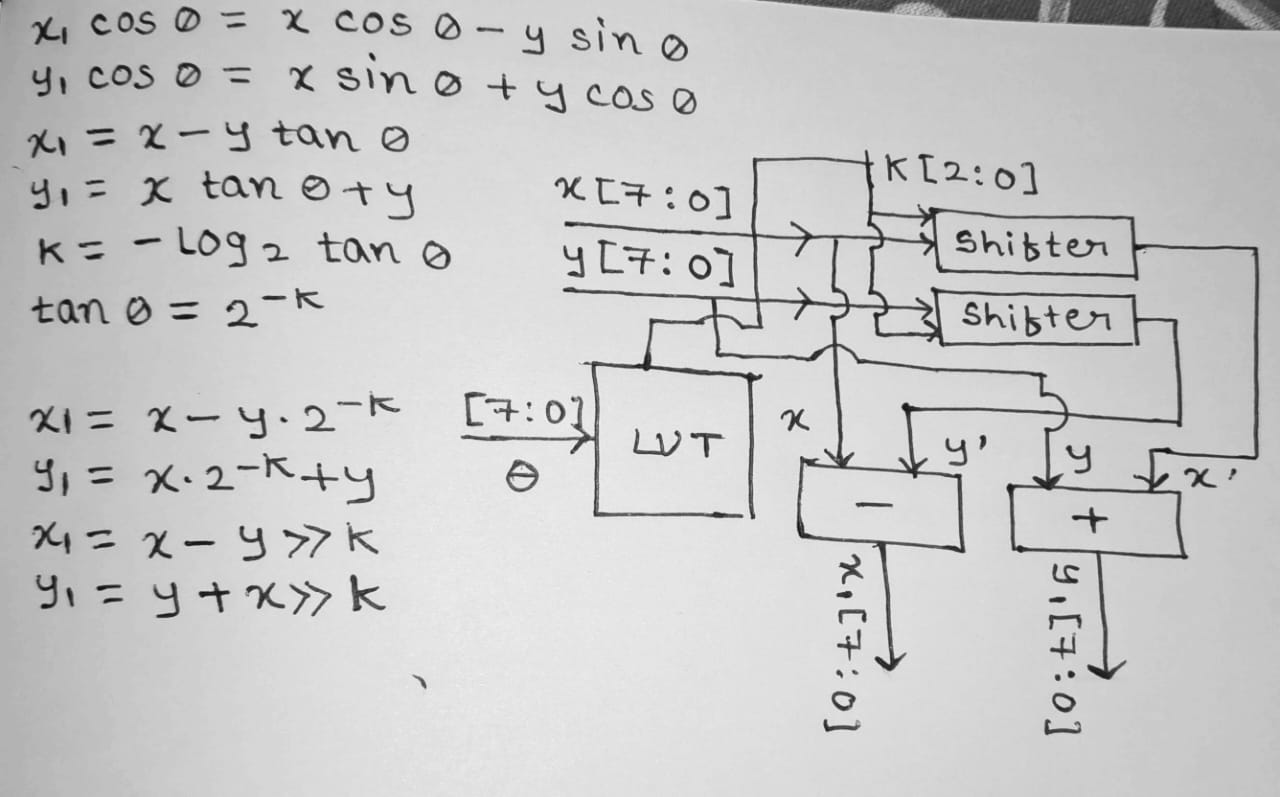 x₁ cos θ = x cos θ - y sin θ
y₁ cos θ = x sin θ + y cos θ
x₁ = x - y tan θ
y₁ = x tan θ + y
K = - Log₂ tan θ
tan θ = 2^-K
x₁ = x - y . 2^-K
y₁ = x . 2^-K + y
x₁ = x - y >> K
y₁ = y + x >> K
K[2:0]
x[7:0]
Shifter
y[7:0]
Shifter
[7:0]
θ
LUT
x
y'
y
x'
-
+
x₁[7:0]
y₁[7:0]